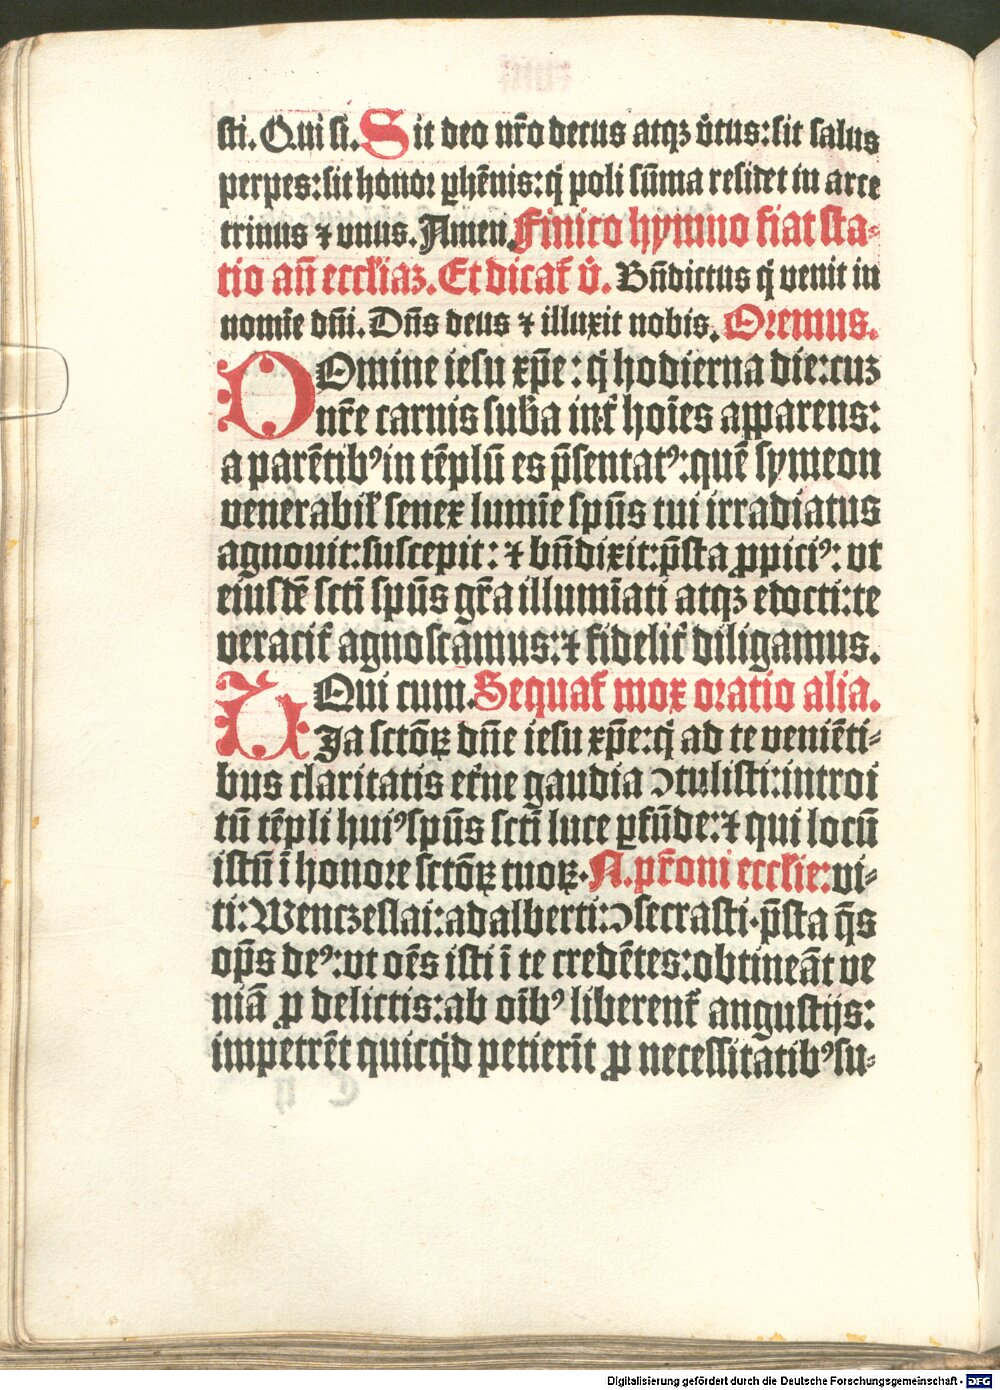 sti. Qui si. Sit deo nr̄o decus atqꝫ v̓tus: sit salus
perpes: sit honoꝛ ꝑhēnis: q̇ poli sūma residet in arce
trinus ⁊ vnus. Amen. Finito hymno fiat sta⸗
tio an̄ eccl̓iaꝫ. Et dicat̓ v̓. Bn̄dictus q̇ venit in
nomīe dn̄i. Dn̄s deus ⁊ illuxit nobis. Oꝛemus.
DOmine iesu xp̄e: q̇ hodierna die: cuꝫ
nr̄e carnis sub̄a int̓ hoīes apparens:
a parētibꝰ in tēplū es p̄sentatꝰ: quē symeon
venerabil̓ senex lumīe spūs tui irradiatus
agnouit: suscepit: ⁊ bn̄dixit: p̄sta ꝓpiciꝰ: vt
eiusdē sctī spūs gr̄a illumīati atqꝫ edocti: te
veracit̓ agnoscamus: ⁊ fidelit̓ diligamus.
Qui cum. Sequat̓ mox oꝛatio alia.
VIa sctōꝝ dn̄e iesu xp̄e: q̇ ad te veniēti⸗
bus claritatis et̓ne gaudia ↄtulisti: introi
tū tēpli huiꝰ spūs sctī luce ꝑfūde: ⁊ qui locū
istū ī honoꝛe sctōꝝ tuoꝝ. N. pr̄oni eccl̓ie: vi⸗
ti: Wenczeslai: adalberti: ↄsecrasti. p̄sta q̄s
op̄s deꝰ: vt oēs isti ī te credētes: obtineāt ve
niā ꝓ delictis: ab oībꝰ liberent̓ angustijs:
impetrēt quicq̇d petierīt ꝓ necessitatibꝰ su⸗
Digitalisierung gefördert durch die Deutsche Forschungsgemeinschaft - DFG